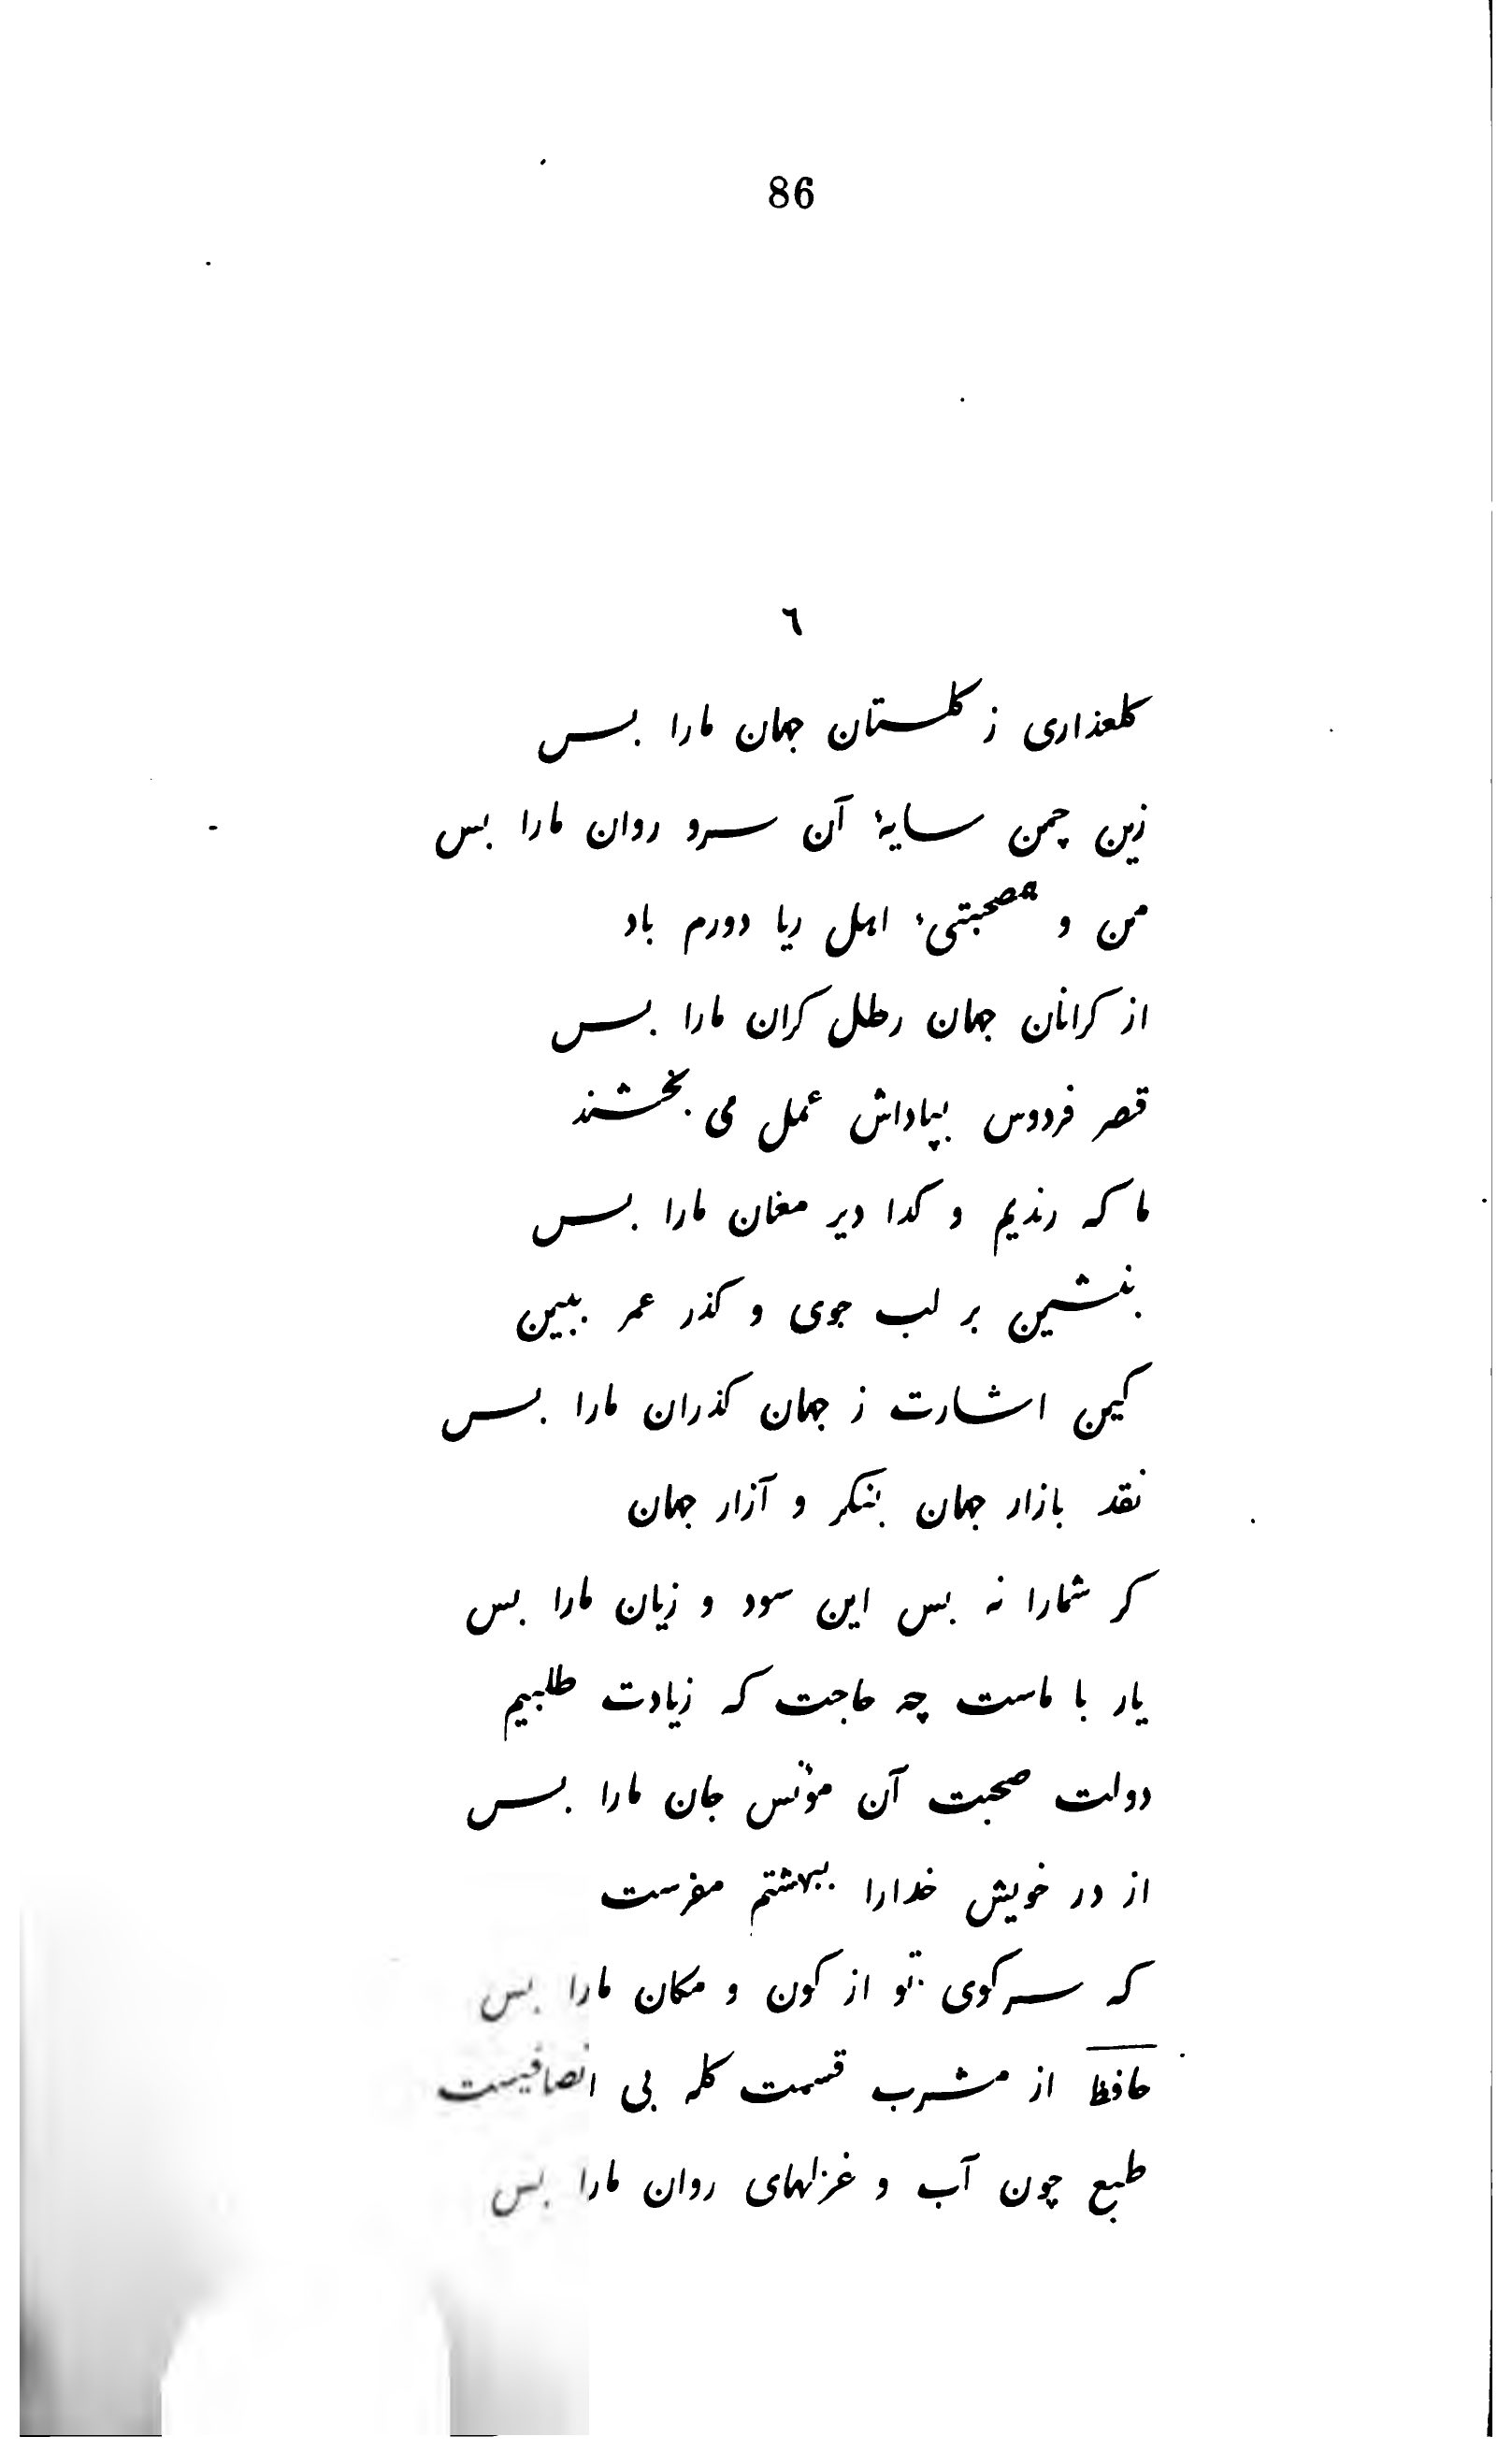 86
٦
کلعذاری ز کلستان جهان مارا بس
زین چمن سایهٔ آن سرو روان مارا بس
من و همصحبتیء اهل ریا دورم باد
از کرانان جهان رطل کران مارا بس
قصر فردوس بپاداش عمل می بخشند
ما که رندیم و کدا دیر مغان مارا بس
بنشین بر لب جوی و کذر عمر ببین
کین اشارت ز جهان کذران مارا بس
نقد بازار جهان بنکر و آزار جهان
کر شمارا نه بس این سود و زیان مارا بس
یار با ماست چه حاجت که زیادت طلبیم
دولت صحبت آن مؤنس جان مارا بس
از در خویش خدارا ببهشتم مفرست
که سر کوی تو از کون و مکان مارا بس
حافظ از مشرب قسمت کله بی انصافیست
طبع چون آب و غزلهای روان مارا بس